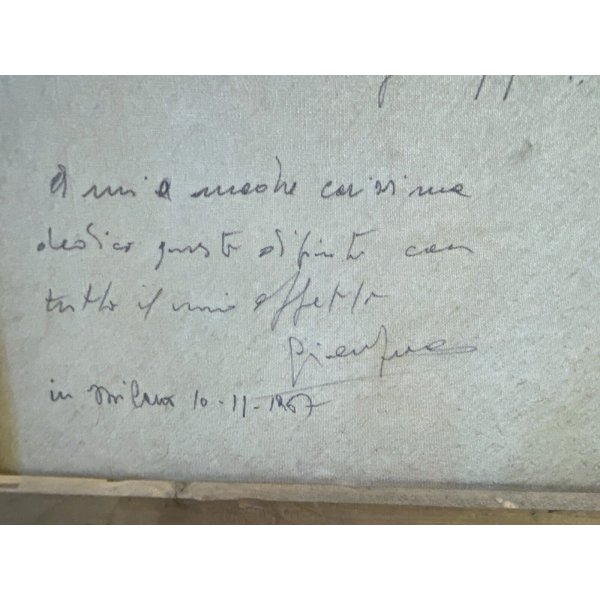 A mia madre carissima
dedico questo dipinto con
tutto il mio affetto
in Milano 10-11-1967